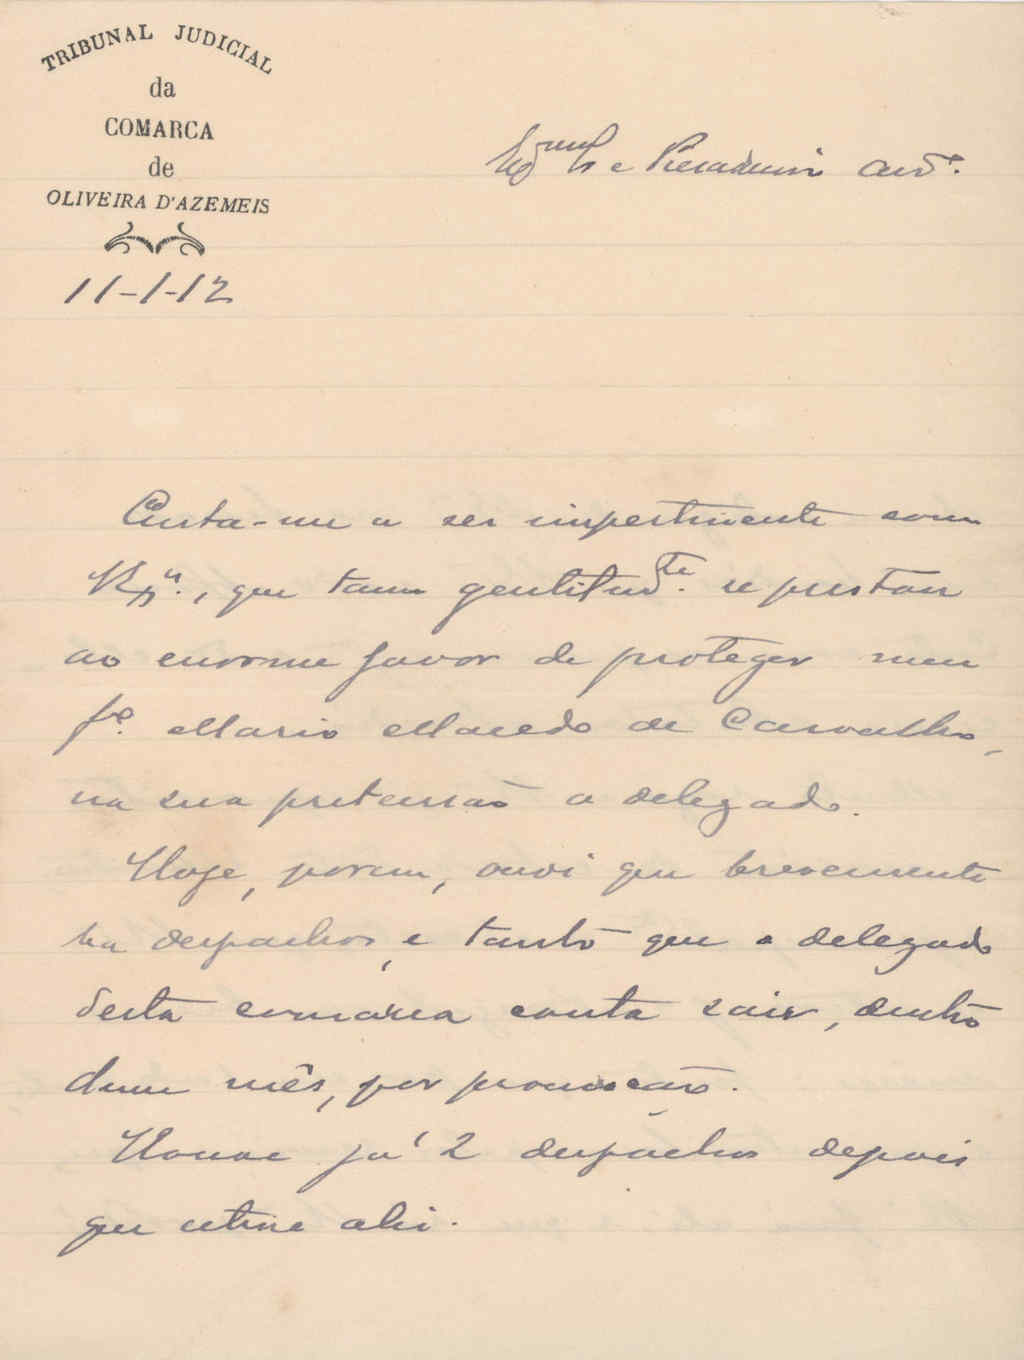 TRIBUNAL JUDICIAL
da
COMARCA
de
OLIVEIRA D'AZEMEIS
11-1-12
Custa-me a ser impertinente com
V. Ex.ª, que tam gentilm.te se prestou
ao enorme favor de proteger meu
f.º Mario Macedo de Carvalho,
na sua pretensão a delegado.
Hoje, porem, ouvi que brevemente
ha despachos, e tanto que o delegado
desta comarca conta sair, dentro
dum mês, por promoção.
Houve já 2 despachos depois
que estive ahi.